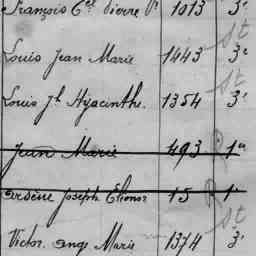 François Cel Pierre Ps 1013 3e
Louis Jean Marie 1443 3e
st
Louis Jh Hyacinthe. 1354 3e
st
Jean Marie 493 R 1e
Joseph 15 R 1e
Victor. ange Marie 1374 3e
st